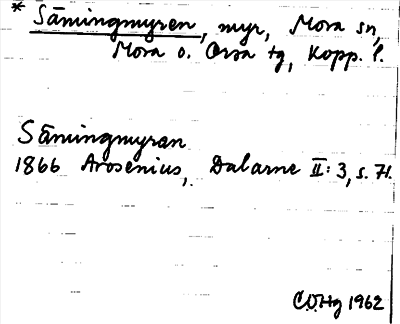 * Såmingmyren, myr, Mora sn,
Mora o. Orsa tg, Kopp. l.
Såmingmyran
1866 Arosenius, Dalarne II: 3, s. 71.
COHg 1962